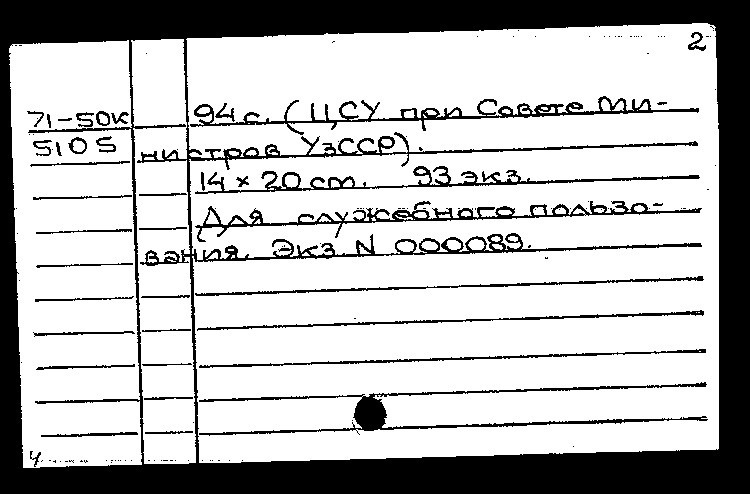 2
71-50к 94 с. (ЦСУ при Совете Ми-
5105 нистров УзССР).
14 × 20 cm. 93 экз.
Для служебного пользо-
вания. Экз. N 000089.